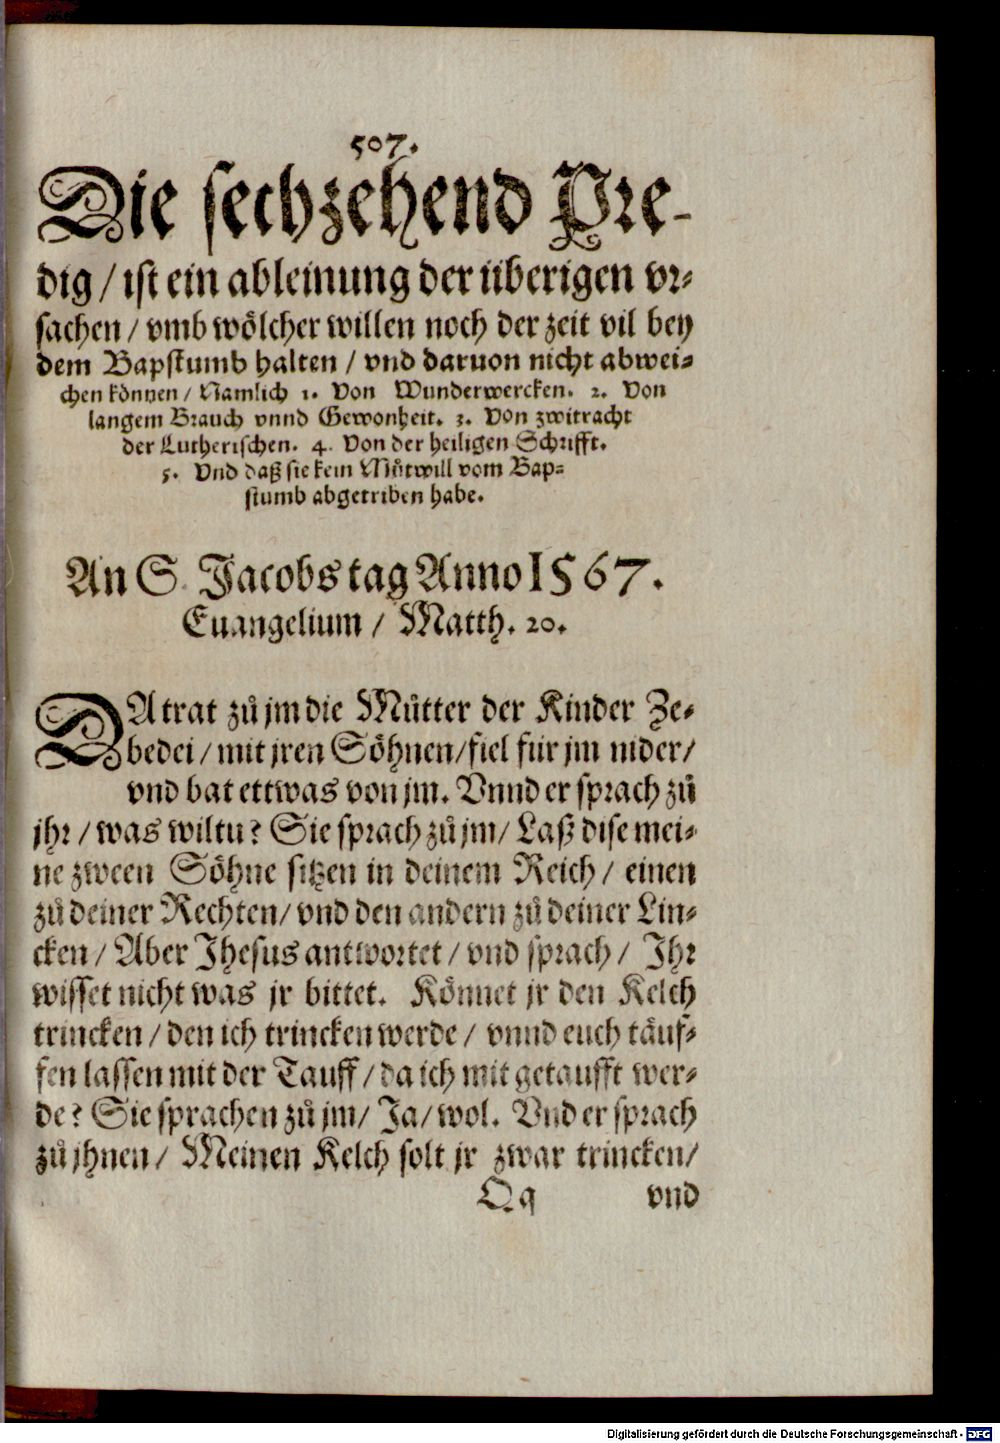 507.
Die sechzehend Pre-
dig / ist ein ableinung der überigen vr-
sachen / vmb wölcher willen noch der zeit vil bey
dem Bapstumb halten / vnd daruon nicht abwei-
chen können / Namlich 1. Von Wunderwercken. 2. Von
langem Brauch vnnd Gewonheit. 3. Von zwitracht
der Lutherischen. 4. Von der heiligen Schrifft.
5. Vnd daß sie kein Můtwill vom Bap-
stumb abgetriben habe.
An S. Jacobs tag Anno 1567.
Euangelium / Matth. 20.
DA trat zů jm die Můtter der Kinder Ze-
bedei / mit jren Söhnen / fiel für jm nider /
vnd bat ettwas von jm. Vnnd er sprach zů
jhr / was wiltu? Sie sprach zů jm / Laß dise mei-
ne zween Söhne sitzen in deinem Reich / einen
zů deiner Rechten / vnd den andern zů deiner Lin-
cken / Aber Jhesus antwortet / vnd sprach / Jhr
wisset nicht was jr bittet. Könnet jr den Kelch
trincken / den ich trincken werde / vnnd euch täuf-
fen lassen mit der Tauff / da ich mit getaufft wer-
de? Sie sprachen zů jm / Ja / wol. Vnd er sprach
zů jhnen / Meinen Kelch solt jr zwar trincken /
Qq vnd
Digitalisierung gefördert durch die Deutsche Forschungsgemeinschaft - DFG